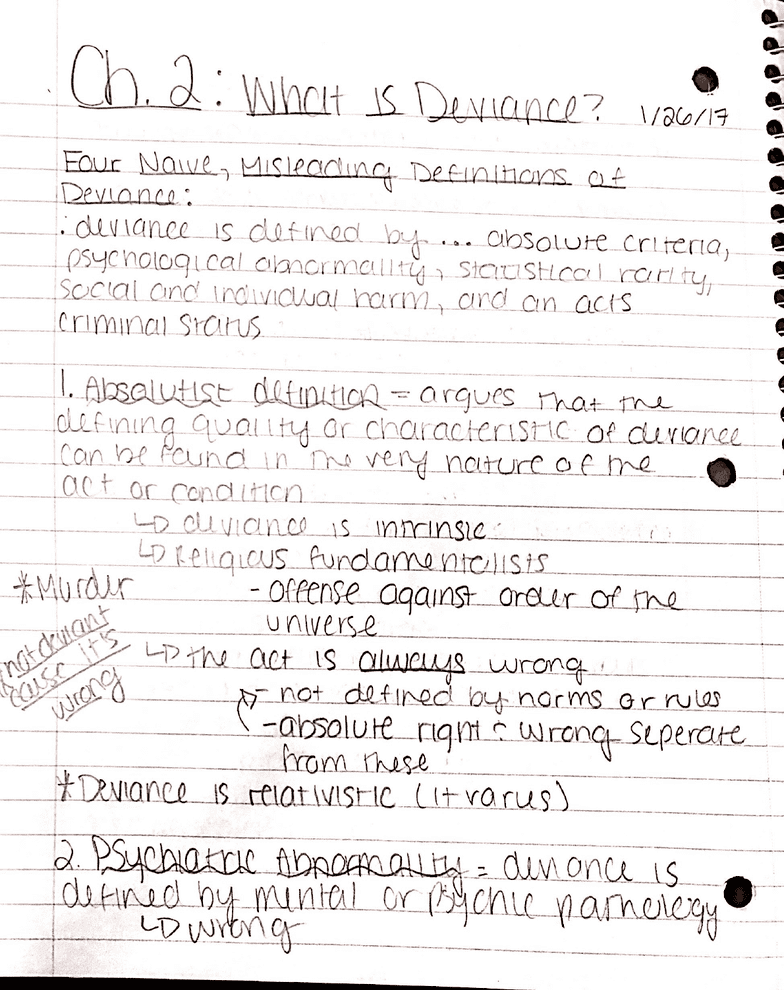 Ch. 2: What is Deviance? 1/26/17
Four Naive, Misleading Definitions of
Deviance:
: deviance is defined by ... absolute criteria,
psychological abnormality, statistical rarity,
social and individual harm, and an acts
criminal status
1. Absolutist definition = argues that the
defining quality or characteristic of deviance
can be found in the very nature of the
act or condition
↳ deviance is intrinsic
↳ Religious fundamentalists
*Murder - offense against order of the
universe
not deviant
cause it's
wrong
↳ the act is always wrong
- not defined by norms or rules
- absolute right : wrong seperate
from these
*Deviance is relativistic (it varus)
2. Psychiatric Abnormality = deviance is
defined by mental or psychic pathology
↳ wrong